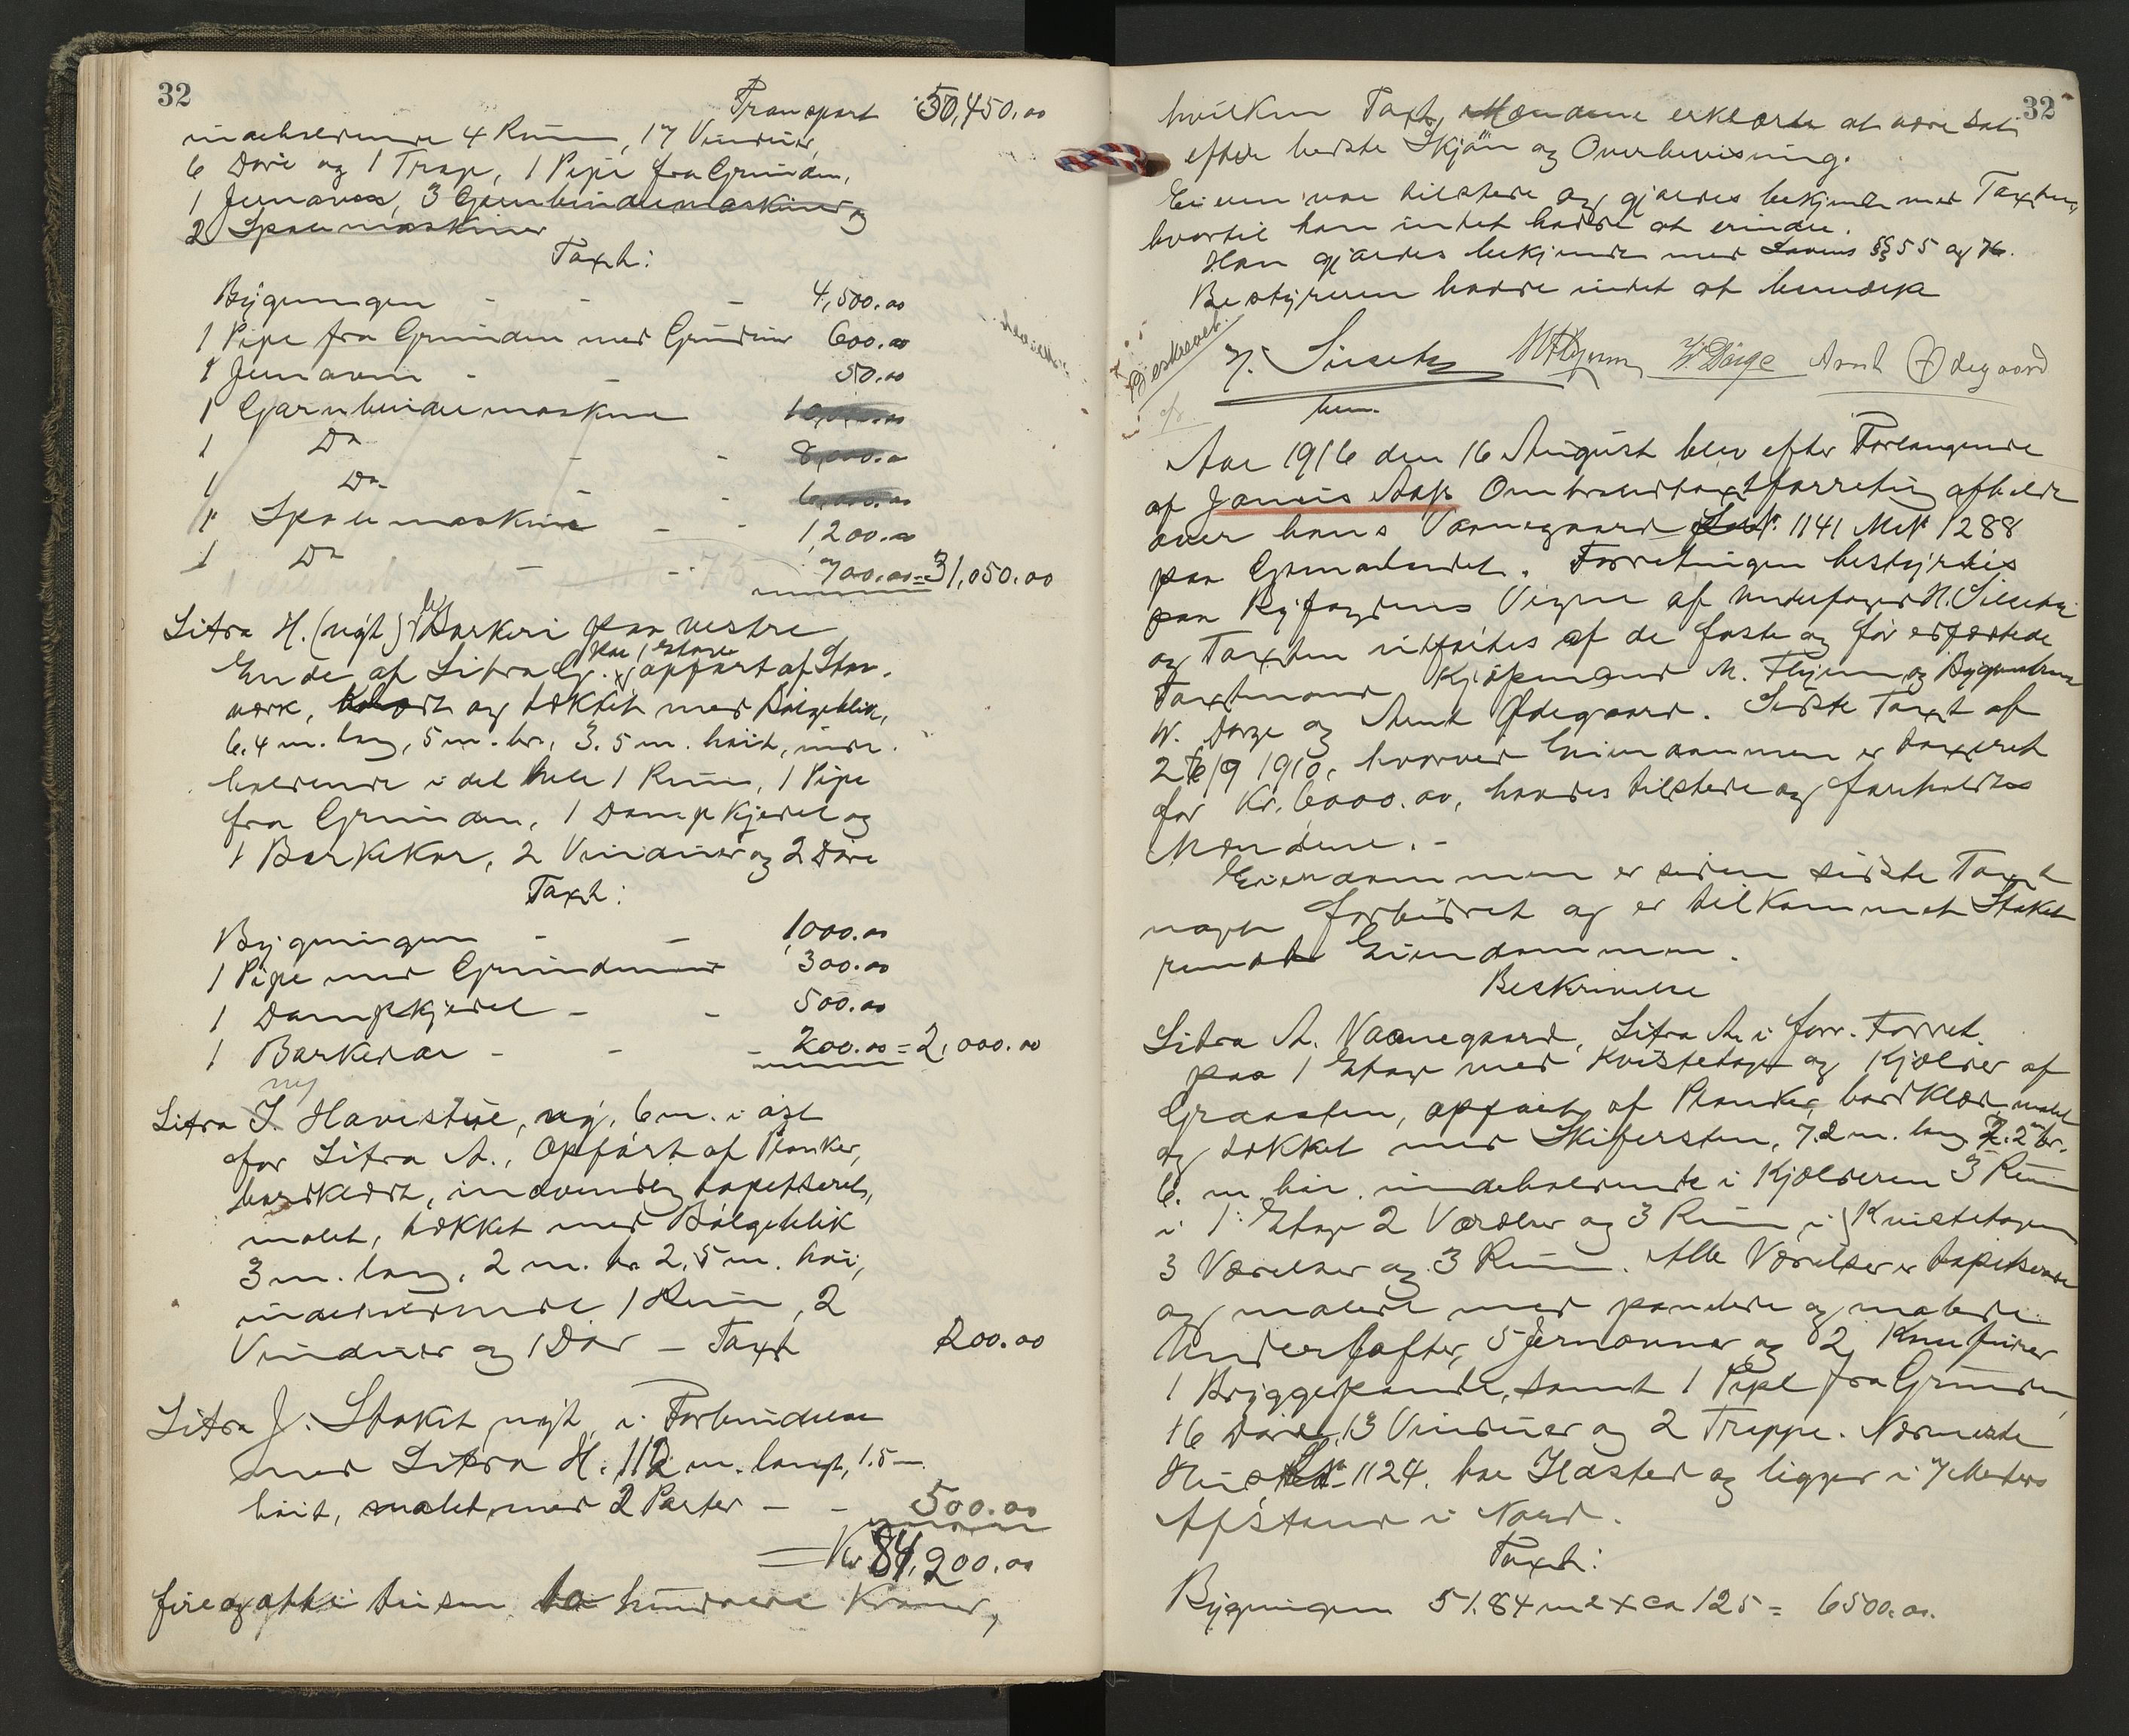 32
Transport 50,450.00
indeholdende 4 Rum, 17 Vinduer,
6 Döre og 1 Trap, 1 Pipe fra Grunden,
1 Jernovn, 3 Garnbindemaskiner og
2 Spolemaskiner
Taxt:
Bygningen - - - 4,500.00
1 Pipe fra Grunden med Grundmur 600.00
1 Jernovn - - 50.00
1 Garnbindemaskine 10,000.00
1 Do - - 8,000.00
1 Do - - 6,000.00
1 Spolemaskine - - 1,200.00
1 Do - - 700.00 = 31,050.00
Litra H. (nyt) Barkeri paa vestre
Ende af Litra G. paa 1 Etage opført af Stav-
værk, klædt og tækket med Bølgeblik,
6.4 m. lang, 5 m. br., 3.5 m. høit, inde-
holdende i det hele 1 Rum, 1 Pipe
fra Grunden, 1 Dampkjedel og
1 Barkekar, 2 Vinduer og 2 Döre
Taxt:
Bygningen - - 1,000.00
1 Pipe med Grundmur 300.00
1 Dampkjedel - - 500.00
1 Barkekar - - - 200.00 = 2,000.00
ny
Litra I. Havestue, ny, 6 m. i øst
for Litra A., Opført af Planker,
bordklædt, indvendig tapetseret,
malet, tækket med Bølgeblik
3 m. lang, 2 m. br. 2,5 m. høi,
indeholdende 1 Rum, 2
Vinduer og 1 Dör - Taxt 200.00
Litra J. Stakit nyt, i Forbindelse
med Litra H. 112 m. langt, 1.5 m.
høit, malet, med 2 Porter - - 500.00
= Kr 84,200.00
fireogotti tusen to hundrede Kroner,
32
hvilken Taxt Mændene erklærte at være sat
efter bedste Skjön og Overbevisning.
Eieren var tilstede og gjordes bekjendt med Taxten,
hvortil han intet havde at erindre.
Han gjordes bekjendt med Lovens §§ 55 og 76.
Bestyreren havde intet at bemærke
Beskrevet.
H. Siseth M Flygenn W. Dørge Arnt Ødegaard
bem.
Aar 1916 den 16 August blev efter Forlangende
af Jonois Aas Ombrandtaxtforretning afholdt
over hans Vaanegaard LNo. 1141 MNo 1288
paa Gomalandet. Forretningen bestyrtes
paa Byfogdens Vegne af Underfoged H. Siseth
og Taxten udførtes af de faste og før edfæstede
Taxtmænd Kjöpmand M. Flygenn og Bygmestrene
W. Dørge og Arnt Ødegaard. Sidste Taxt af
26/9 1910, hvorved Eiendommen er taxeret
for Kr. 6000.00, havdes tilstede og foreholdtes
Mændene. -
Eiendommen er siden sidste Taxt
noget forbedret og er tilkommet Stakit
rundt Eiendommen.
Beskrivelse
Litra A. Vaanegaard, Litra A. i forr. Forret.
paa 1 Etage med Kvistetage og Kjælder af
Graasten, opført af Planker, bordklædt, malet
og tækket med Skifersten, 7.2 m. lang 7.2 m br.
6. m. høi. indeholdende i Kjælderen 3 Rum
i 1. Etage 2 Værelser og 3 Rum, i Kvistetagen
3 Værelser og 3 Rum. Alle Værelser er tapetserede
og malede med panelede og malede
Underlofter, 5 Jernovner og 2 Komfurer
1 Bryggepande, samt 1 Pipe fra Grunden,
16 Döre, 13 Vinduer og 2 Trapper. Nærmeste
Hus LNo. 1124. har Ildsted og ligger i 7 Meters
Afstand i Nord.
Taxt:
Bygningen 51.84 m2 x ca 125 = 6500.00.